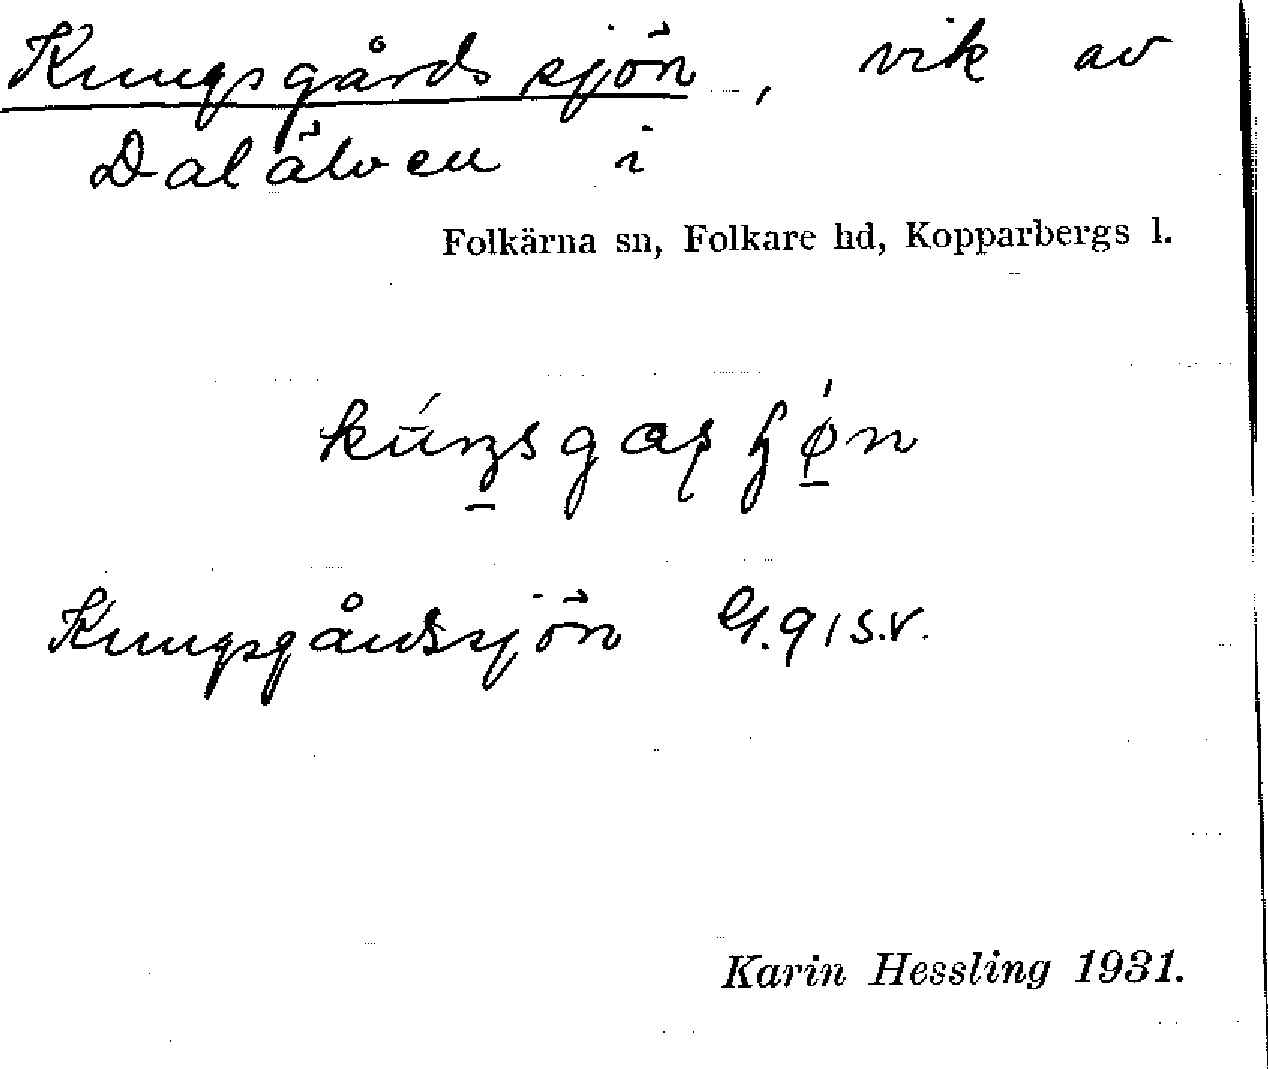 Kungsgårdssjön, vik av
Dalälven i
Folkärna sn, Folkare hd, Kopparbergs l.
Kungsgårdssjön G. 91 s.v.
Karin Hessling 1931.